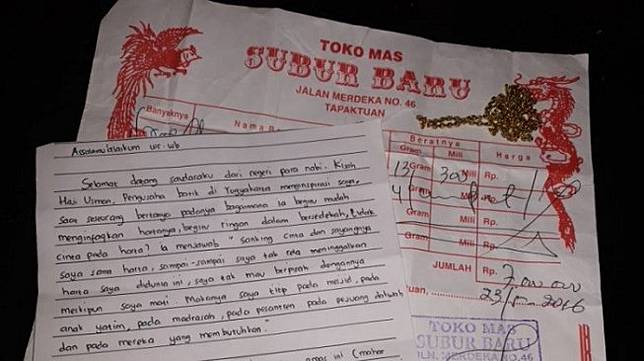 TOKO MAS
SUBUR BARU
JALAN MERDEKA NO. 46
TAPAKTUAN
Banyaknya
Nama B
Beratnya
Harga
Gram
Mili
13 Gram
300 Mili
Rp.
Gram
Mili
Rp.
Rp.
JUMLAH Rp. 7.000.000
uan, 2016
TOKO MAS
SUBUR BARU
JLN. MERDEKA NO. 46
Assalamulaikum wr. wb
Selamat datang saudaraku dari negeri para nabi. Kisah
Haji Usman, Pengusaha batik di Yogyakarta menginspirasi saya,
Saat seseorang bertanya padanya bagaimana Ia begitu mudah
menginfaqkan hartanya, begitu ringan dalam bersedekah, tidak
cinta pada harta? Ia menjawab " Sanking cinta dan sayangnya
saya sama harta, sampai-sampai saya tak rela meninggalkan
harta saya didunia ini, saya tak mau berpisah dengannya
meskipun saya mati. Makanya saya titip pada mesjid, pada
anak yatim, pada madrasah, pada pesantren pada pejuang dakwah
dan pada mereka yang membutuhkan."
ini (mahar